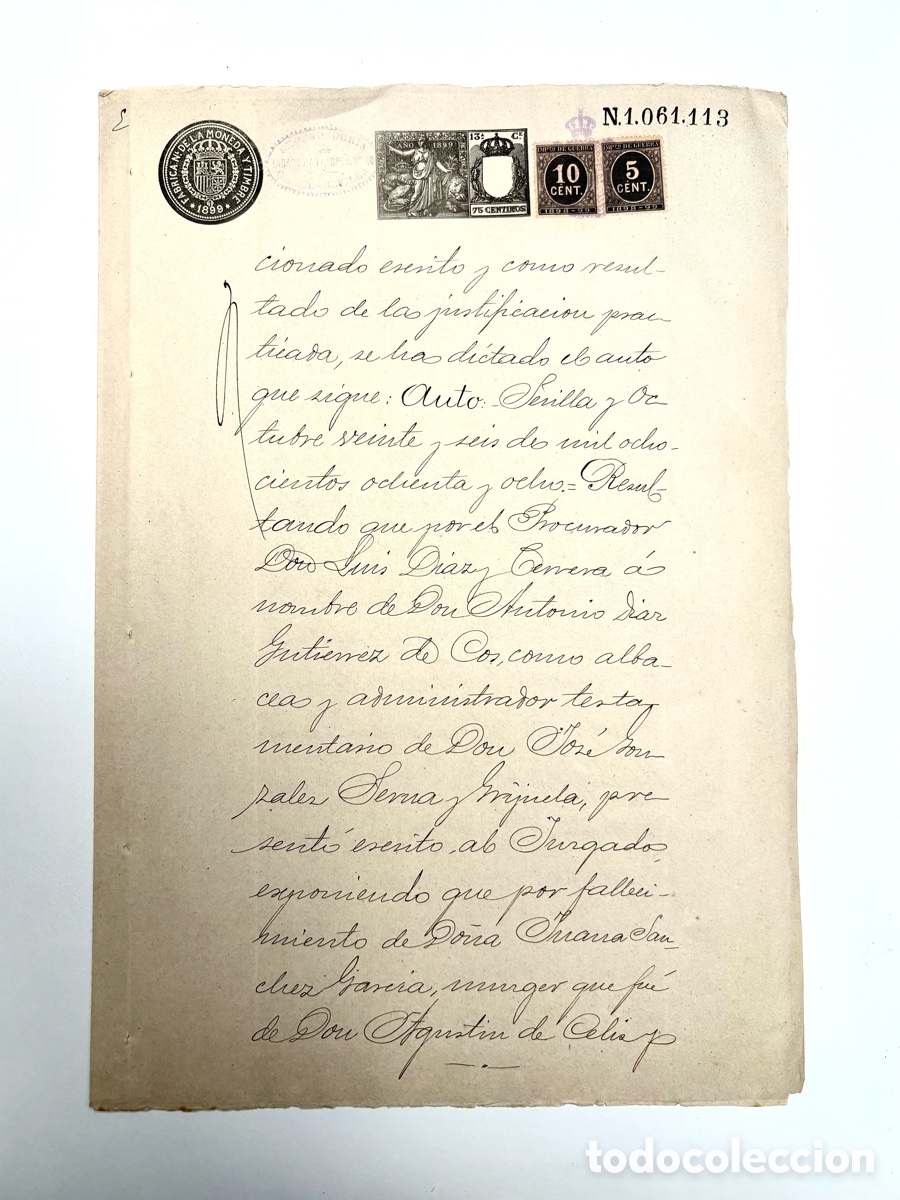 N.1.061.113
FABRICA N. DE LA MONEDA Y TIMBRE
* 1899 *
AÑO 1899
13ª Cᴱ
75 CENTIMOS
IMPTO DE GUERRA
10
CENT.
1898-99
IMPTO DE GUERRA
5
CENT.
1898-99
cionado escrito y como resul-
tado de la justificacion prac
ticada, se ha dictado el auto
que sigue: Auto:- Sevilla y Oc
tubre veinte y seis de mil ocho-
cientos ochenta y ocho.= Resul-
tando que por el Procurador
Don Luis Diaz y Cervera á
nombre de Don Antonio Diaz
Gutierrez de Cos, como alba-
cea y administrador testa
mentario de Don José Gon
zalez Serna y Grijuela, pre
sentó escrito al Juzgado
exponiendo que por falleci-
miento de Doña Juana San-
chez Garcia, muger que fué
de Don Agustin de Celis y
todocoleccion